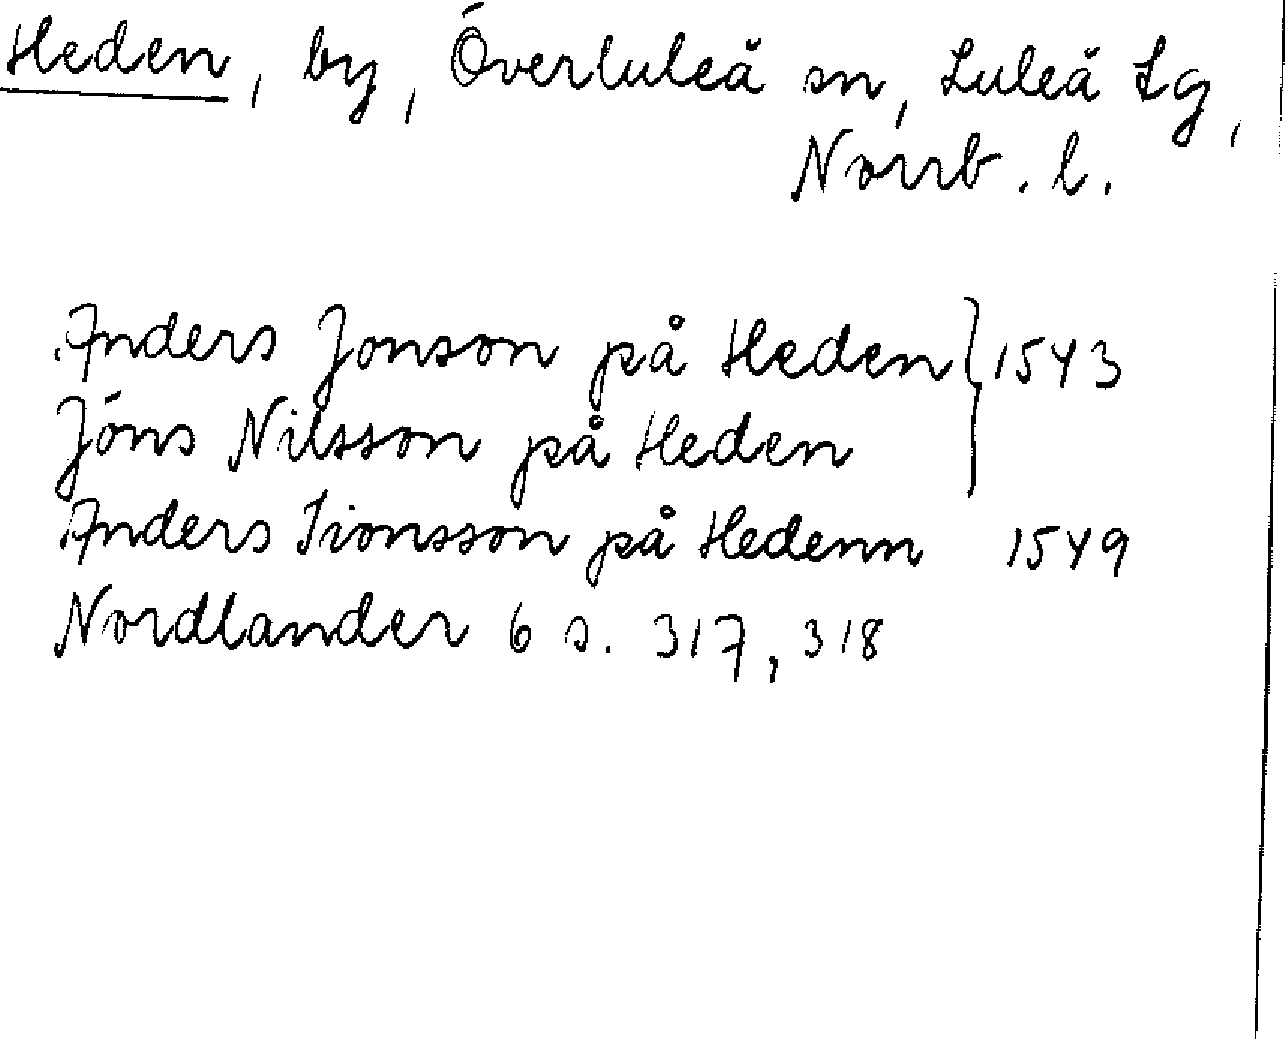 Heden, by, Överluleå sn, Luleå tg,
Norrb. l.
Anders Jonson på Heden } 1543
Jöns Nilsson på Heden
Anders Jionsson på Hedenn 1549
Nordlander 6 s. 317, 318